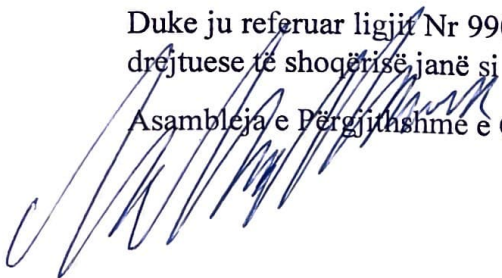 Duke ju referuar ligjit Nr 990
drejtuese të shoqërisë janë si
Asambleja e Përgjithshme e